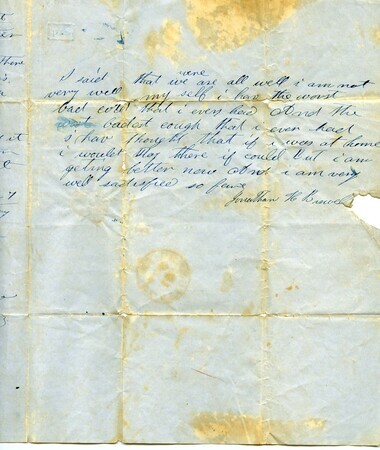 i said that we are all well i am not
very well my self i hav the worst
bad cold that i ever had And the
badest cough that i ever had
i hav thought that if i was at home
i would stay there if could but i am
geting better now And i am very
well sadisfied so far
Jonathan H